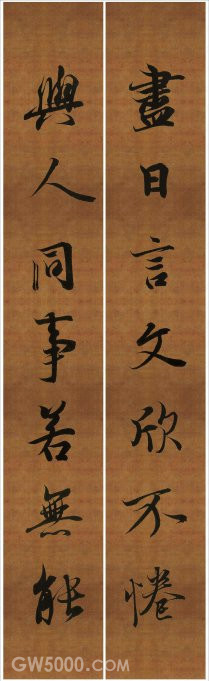 盡日言文欣不惓
與人同事若無能
GW5000.com